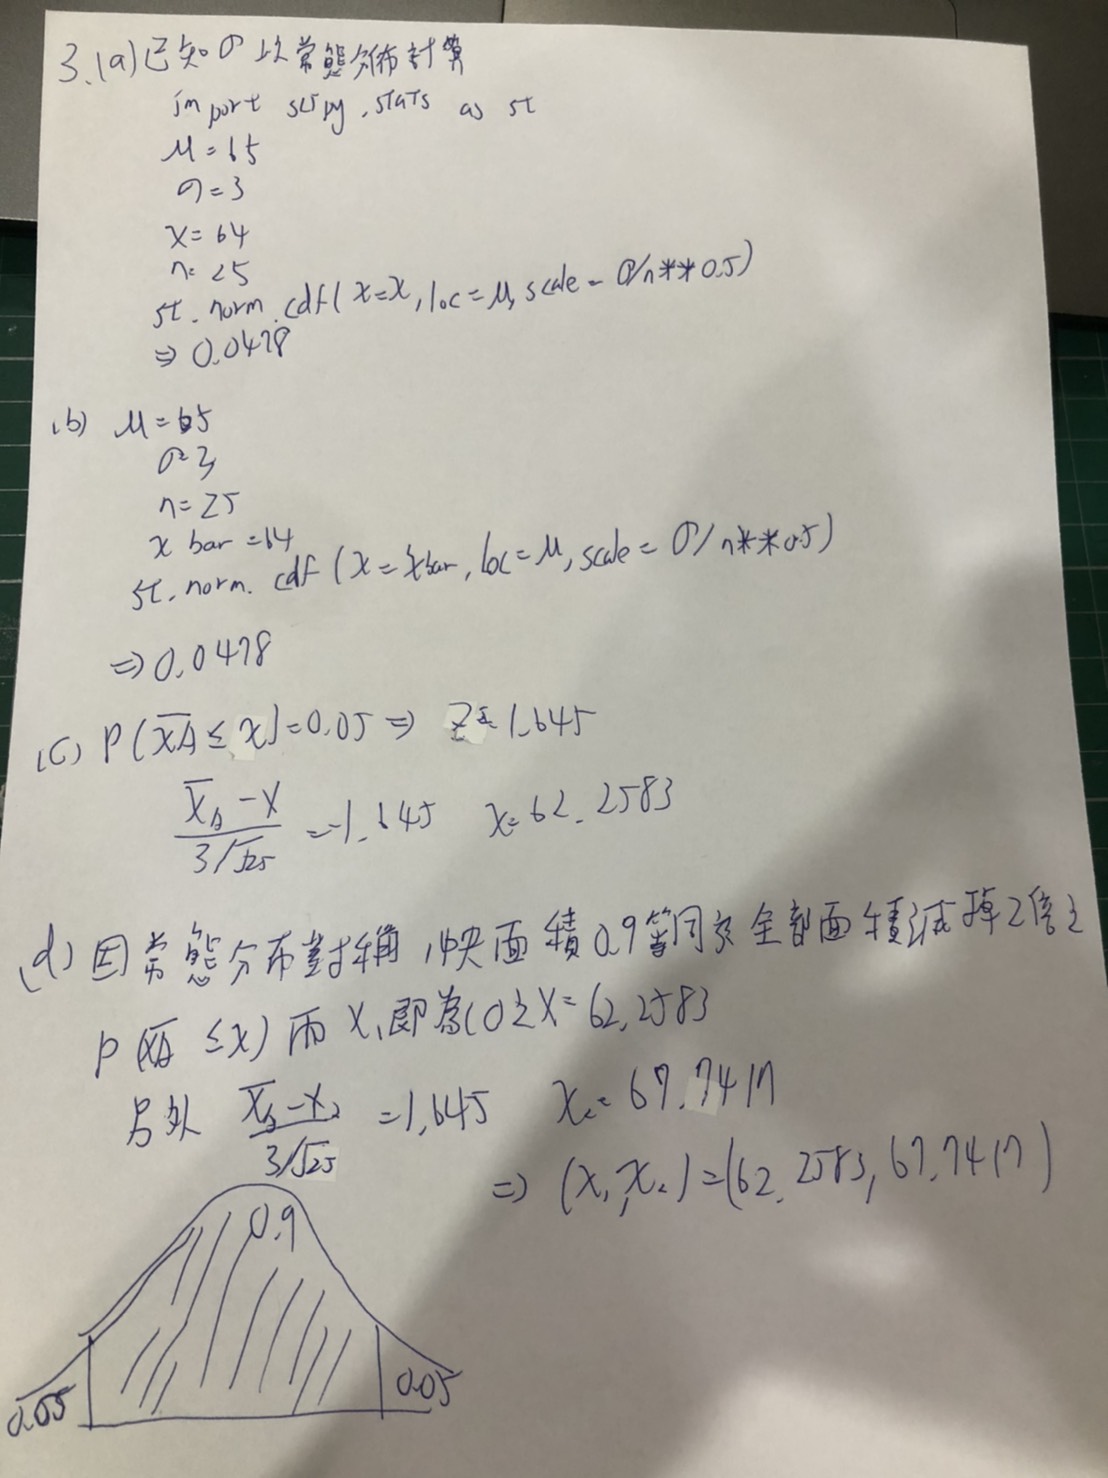 3.(a)已知σ以常態分佈計算
import scipy.stats as st
μ=65
σ=3
x=64
n=25
st.norm.cdf(x=x,loc=μ,scale=σ/n**0.5)
⇒0.0478
(b) μ=65
σ=3
n=25
x bar=64
st.norm.cdf(x=xbar,loc=μ,scale=σ/n**0.5)
⇒0.0478
(c) P(X̄A≤x)=0.05⇒ Z=1.645
(X̄A-x)/(3/√25)=-1.645 x=62.2583
(d)因常態分布對稱,中央面積0.9等同於全部面積減掉2倍之
P(X̄A≤x)而x₁即為(c)之x=62.2583
另外 (X̄A-x₂)/(3/√25)=1.645 x₂=67.7417
⇒(x₁,x₂)=(62.2583,67.7417)
0.9
0.05 0.05